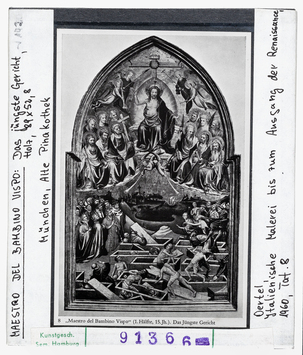 MAESTRO DEL BAMBINO VISPO: Das jüngste Gericht,
Holz, 89 x 52,8
München, Alte Pinakothek
8 „Maestro del Bambino Vispo“ (1. Hälfte, 15. Jh.). Das Jüngste Gericht
Oertel
Italienische Malerei bis zum Ausgang der Renaissance
1960, Taf. 8
Kunstgesch.
Sem. Hamburg
91366